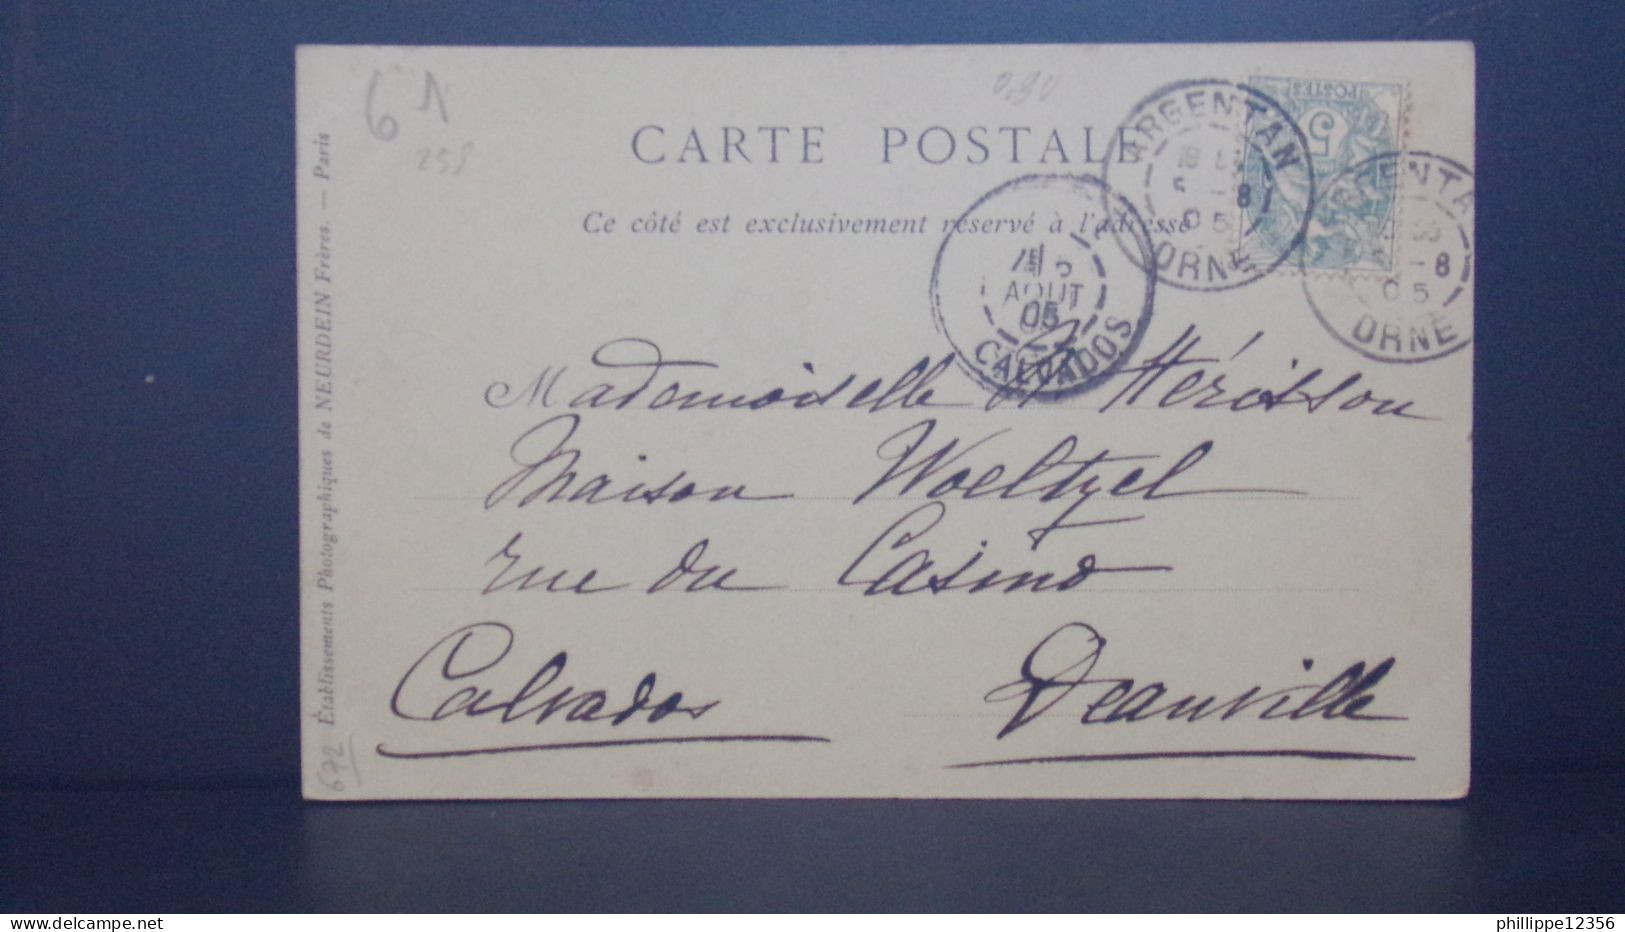 61
258
0,90
CARTE POSTALE
Ce côté est exclusivement réservé à l'adresse
ARGENTAN
8
05
ORNE
POSTES
5
8
05
ORNE
AOUT
05
CALVADOS
Mademoiselle Hérisson
Maison Woeltzel
rue du Casino
Calvados Deauville
Établissements Photographiques de NEURDEIN Frères. — Paris
672
delcampe.net
philippe12356